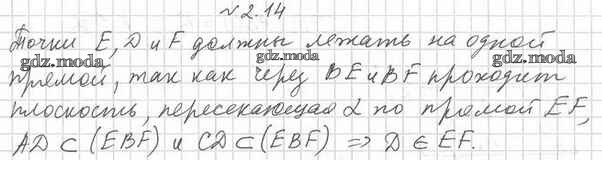 № 2.14
Точки E, D и F должны лежать на одной
прямой, так как через BE и BF проходит
плоскость, пересекающая α по прямой EF,
AD ⊂ (EBF) и CD ⊂ (EBF) ⇒ D ∈ EF.
gdz.moda
gdz.moda
gdz.moda
gdz.moda
gdz.moda
gdz.moda